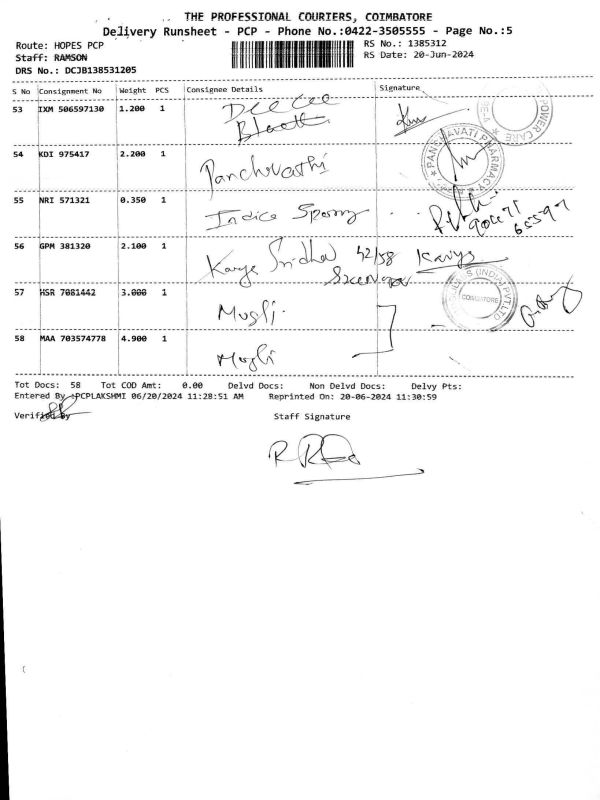 THE PROFESSIONAL COURIERS, COIMBATORE
Delivery Runsheet - PCP - Phone No.:0422-3505555 - Page No.:5
Route: HOPES PCP
RS No.: 1385312
Staff: RAMSON
RS Date: 20-Jun-2024
DRS No.: DCJB138531205
S No Consignment No Weight PCS Consignee Details Signature
53 IXM 506597130 1.200 1 Dee cee
POWER CARE
54 KDI 975417 2.200 1 Panchvathi
PANCHAVATI PHARMACY
55 NRI 571321 0.350 1 Indica
56 GPM 381320 2.100 1 Kavya Sridha 42/58 Kavya
57 HSR 7081442 3.000 1 Mogli
(INDIA) PVT LTD
COIMBATORE
58 MAA 703574778 4.900 1 Mogli
Tot Docs: 58 Tot COD Amt: 0.00 Delvd Docs: Non Delvd Docs: Delvy Pts:
Entered By :PCPLAKSHMI 06/20/2024 11:28:51 AM Reprinted On: 20-06-2024 11:30:59
Verified By Staff Signature